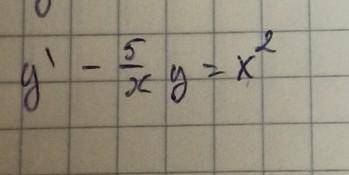 y' - 5/x y = x²